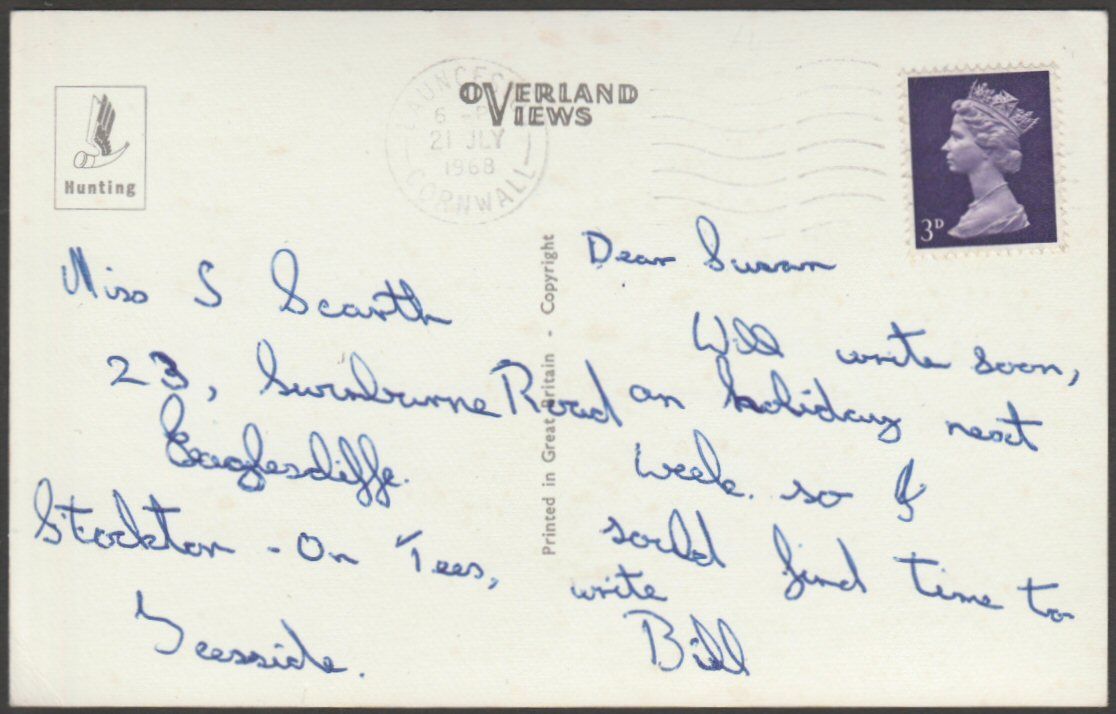 OVERLAND
VIEWS
Hunting
LAUNCEST
6 -P
21 JLY
1968
CORNWALL
3D
Printed in Great Britain - Copyright
Miss S Scarth
23, Swinburne Road
Eaglescliffe.
Stockton - On Tees,
Teesside.
Dear Susan
Will write soon,
on holiday next
week. so I
sould find time to
write
Bill